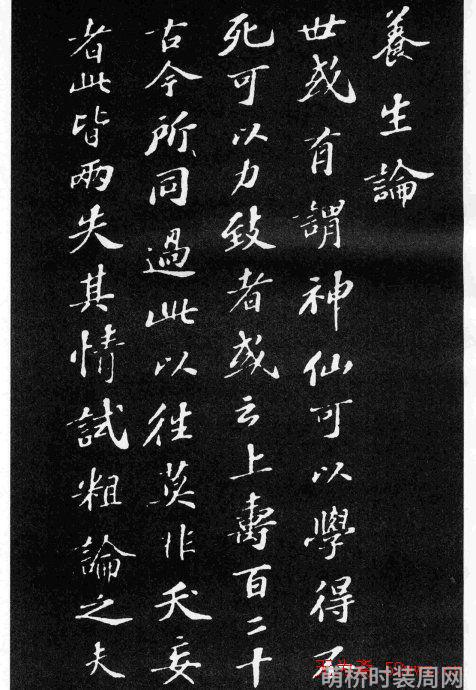 養生論
世或有謂神仙可以學得不
死可以力致者或云上壽百二十
古今所同過此以徃莫非夭妄
者此皆兩失其情試粗論之夫
萌桥时装周网